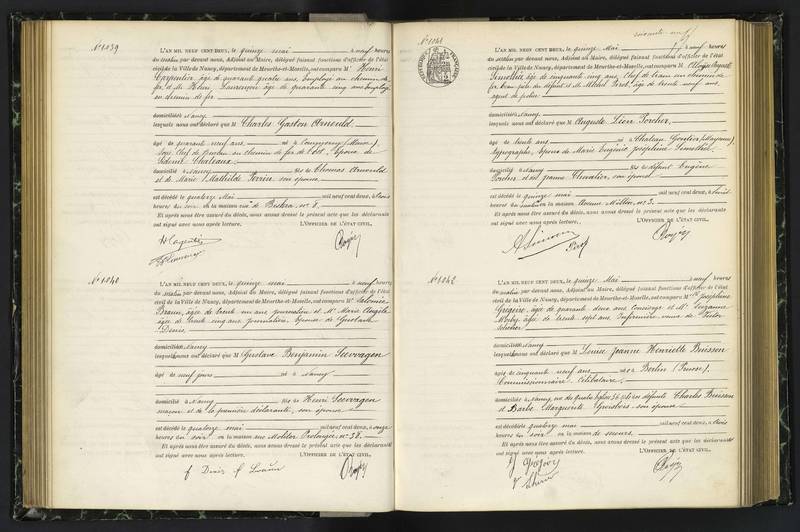 N° 1039
L'AN MIL NEUF CENT DEUX, le quinze mai à neuf heures
du matin par devant nous, Adjoint au Maire, délégué faisant fonctions d'officier de l'état
civil de la Ville de Nancy, département de Meurthe-et-Moselle, ont comparu M. Henri
Carpentier, âgé de quarante quatre ans, Employé au chemin de
fer, et M. Henri, âgé de quarante cinq ans employé
au chemin de fer
domiciliés à Nancy
lesquels nous ont déclaré que M Charles Gaston Arnould
âgé de quarante neuf ans né à Commercy (Meuse)
Sous Chef de Bureau au chemin de fer de l'est, Epoux de
Chateaux
domicilié à Nancy fils de Thomas Arnould
et de Marie Mathilde Perrin, son épouse
est décédé le quatorze Mai mil neuf cent deux, à
heures du soir en la maison rue de Biskra, n° 8.
Et après nous être assuré du décès, nous avons dressé le présent acte que les déclarants
ont signé avec nous après lecture. L'OFFICIER DE L'ÉTAT CIVIL,
N° 1040
L'AN MIL NEUF CENT DEUX, le quinze mai à neuf heures
du matin par devant nous, Adjoint au Maire, délégué faisant fonctions d'officier de l'état
civil de la Ville de Nancy, département de Meurthe-et-Moselle, ont comparu M Salomée
Braun, âgée de trente un ans journalière et Me Marie Angèle
âgée de trente cinq ans journalière, Epouse de Gustave
Denis,
domiciliés à Nancy
lesquels nous ont déclaré que M Gustave Benjamin Seevvagen
âgé de neuf jours né à Nancy
domicilié à Nancy fils de Henri Seevvagen
maçon et de la première déclarante, son épouse
est décédé le quatorze mai mil neuf cent deux, à onze
heures du soir en la maison rue Molitor Prolongée, n° 38.
Et après nous être assuré du décès, nous avons dressé le présent acte que les déclarants
ont signé avec nous après lecture. L'OFFICIER DE L'ÉTAT CIVIL,
f Denis f Braun
soixante-neuf
N° 1041
L'AN MIL NEUF CENT DEUX, le quinze Mai à neuf heures
du matin par devant nous, Adjoint au Maire, délégué faisant fonctions d'officier de l'état
civil de la Ville de Nancy, département de Meurthe-et-Moselle, ont comparu M.
âgé de cinquante cinq ans, Chef de train au chemin de
fer, beau père du défunt et M. Michel Pirot, âgé de trente neuf ans,
agent de police
domiciliés à Nancy
lesquels nous ont déclaré que M Auguste Porcher,
âgé de trente ans né à Château Gontier (Mayenne),
typographe, époux de Marie Eugénie Joséphine
domicilié à Nancy fils de défunt Eugène
Porcher et de Jeanne Chevalier, son épouse
est décédé le quinze mai mil neuf cent deux, à
heures du matin en la maison Avenue Milton, n° 3.
Et après nous être assuré du décès, nous avons dressé le présent acte que les déclarants
ont signé avec nous après lecture. L'OFFICIER DE L'ÉTAT CIVIL,
Pirot
N° 1042
L'AN MIL NEUF CENT DEUX, le quinze Mai à neuf heures
du matin par devant nous, Adjoint au Maire, délégué faisant fonctions d'officier de l'état
civil de la Ville de Nancy, département de Meurthe-et-Moselle, ont comparu M Joséphine
Grégoire, âgée de quarante deux ans Concierge et M Suzanne
âgée de trente sept ans Infirmière veuve de Victor
domiciliés à Nancy
lesquels nous ont déclaré que M Louise Jeanne Henriette Buisson
âgée de cinquante neuf ans née à Berlin (Prusse),
Commissionnaire Célibataire,
domiciliée à Nancy, rue des Quatre Eglises 56 fille des défunts Charles Buisson
et Barbe Marguerite son épouse
est décédée quatorze mai mil neuf cent deux, à trois
heures du soir en la maison de secours.
Et après nous être assuré du décès, nous avons dressé le présent acte que les déclarants
ont signé avec nous après lecture. L'OFFICIER DE L'ÉTAT CIVIL,